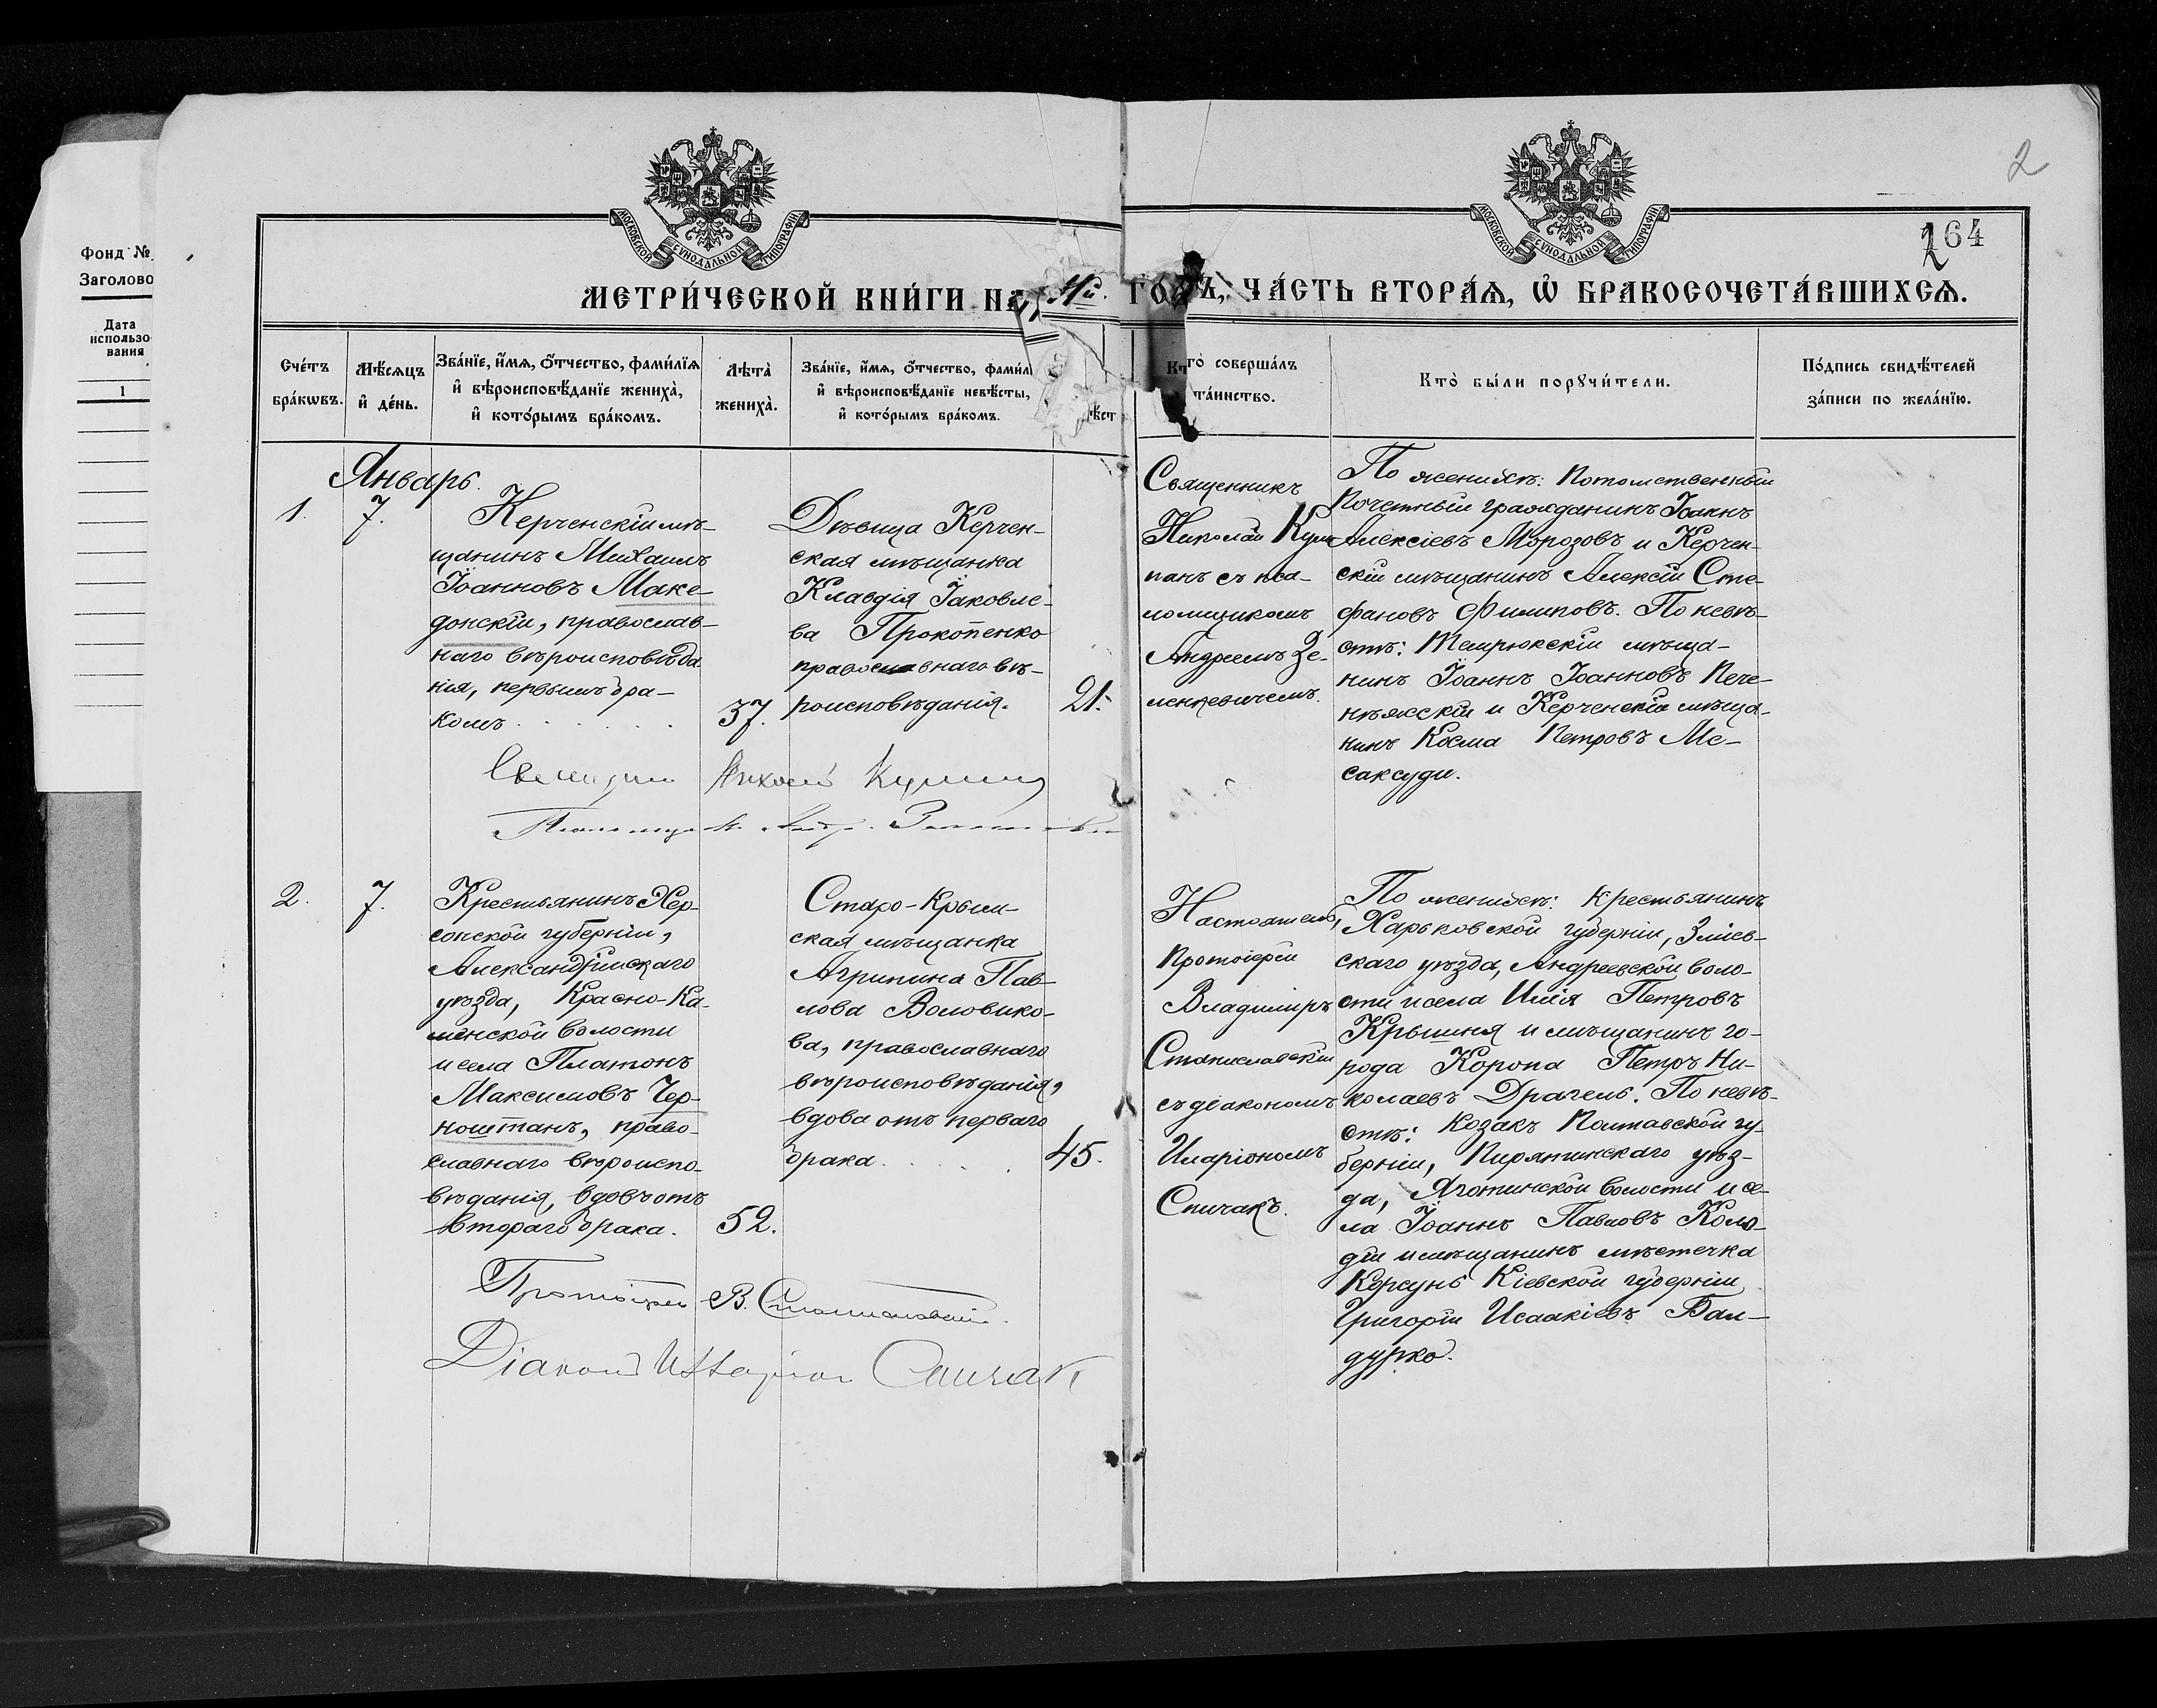 Фонд №
Заголово
Дата
использо
вания
1
2
264
МОСКОВСКОЙ СѴНОДАЛЬНОЙ ТИПОГРАФІИ
МОСКОВСКОЙ СѴНОДАЛЬНОЙ ТИПОГРАФІИ
МЕТРИ́ЧЕСКОЙ КНИ́ГИ НА
ГОДЪ, ЧА́СТЬ ВТОРА́Ѧ, Ѡ҆ БРАКОСОЧЕТА́ВШИХСѦ.
Сче́тъ
бра́кѡвъ.
Мѣ́сяцъ
и҆ де́нь.
Зва́нїе, и҆́мѧ, ѻ҆́тчество, фами́лїѧ
и҆ вѣроисповѣ́данїе жениха̀,
и҆ кото́рымъ бра́комъ.
Лѣта̀
жениха̀.
Зва́нїе, и҆́мѧ, ѻ҆́тчество, фами́л
и҆ вѣроисповѣ́данїе невѣ́сты,
и҆ кото́рымъ бра́комъ.
ѣ́ст
Кто̀ соверша́лъ
та́инство.
Кто̀ бы́ли порꙋчи́тели.
По́дпись свидѣ́телей
за́писи по жела́нїю.
Январь.
1.
7.
Керченскій мѣ-
щанинъ Михаилъ
Іоанновъ Маке-
донскій, православ-
наго вѣроисповѣда
нія, первымъ бра-
комъ . . . . . .
37.
Дѣвица Керчен-
ская мѣщанка
Клавдія Іаковле-
ва Прокопенко
православнаго вѣ-
роисповѣданія.
21.
Священникъ
Николай Кум
панъ съ пса-
ломщикомъ
Андреемъ Зе-
ленкевичемъ.
По женихѣ: Потомственный
Почетный гражданинъ Іоаннъ
Алексіевъ Морозовъ и Керчен-
скій мѣщанинъ Алексій Сте-
фановъ Филиповъ. По невѣ-
стѣ: Темрюкскій мѣща-
нинъ Іоаннъ Іоанновъ Пече-
нѣжскій и Керченскій мѣща-
нинъ Косма Петровъ Ме-
саксуди.
Николай
2.
7.
Крестьянинъ Хер-
сонской губерніи,
Александрійскаго
уѣзда, Красно-Ка-
менской волости
и села Платонъ
Максимовъ Чер-
ноштанъ, право-
славнаго вѣроиспо-
вѣданія, вдовъ отъ
втораго брака.
52.
Старо-Крым-
ская мѣщанка
Агрипина Пав-
лова Воловико-
ва, православнаго
вѣроисповѣданія,
вдова отъ перваго
брака . . . . .
45.
Настоятель,
Протоіерей
Владиміръ
Станиславскій
съ діакономъ
Иларіономъ
Спичакъ.
По женихѣ: Крестьянинъ
Харьковской губерніи, Зміев-
скаго уѣзда, Андреевской воло-
сти и села Илія Петровъ
Крышня и мѣщанинъ го-
рода Коропа Петръ Ни-
колаевъ Драгель. По невѣ-
стѣ: Козакъ Полтавской гу-
берніи, Пирятинскаго уѣз-
да, Яготинской волости и се-
ла Іоаннъ Павловъ Коло-
дій и мѣщанинъ мѣстечка
Корсунь Кіевской губерніи
Григорій Исаакіевъ Бан-
дурко.
Протоіерей В. Станиславскій.
Діаконъ Иларіон Спичакъ